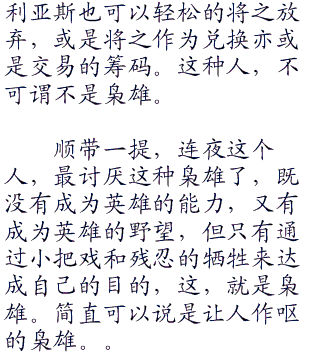 利亚斯也可以轻松的将之放
弃，或是将之作为兑换亦或
是交易的筹码。这种人，不
可谓不是枭雄。
顺带一提，连夜这个
人，最讨厌这种枭雄了，既
没有成为英雄的能力，又有
成为英雄的野望，但只有通
过小把戏和残忍的牺牲来达
成自己的目的，这，就是枭
雄。简直可以说是让人作呕
的枭雄。。